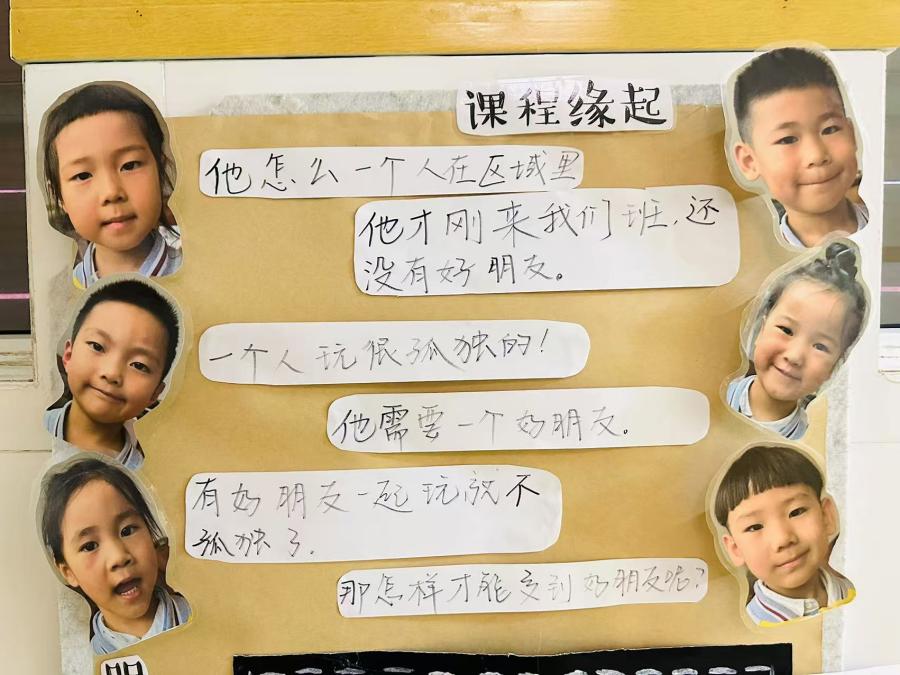 课程缘起
他怎么一个人在区域里
他才刚来我们班,还
没有好朋友。
一个人玩很孤独的!
他需要一个好朋友。
有好朋友一起玩就不
孤独了.
那怎样才能交到好朋友呢?